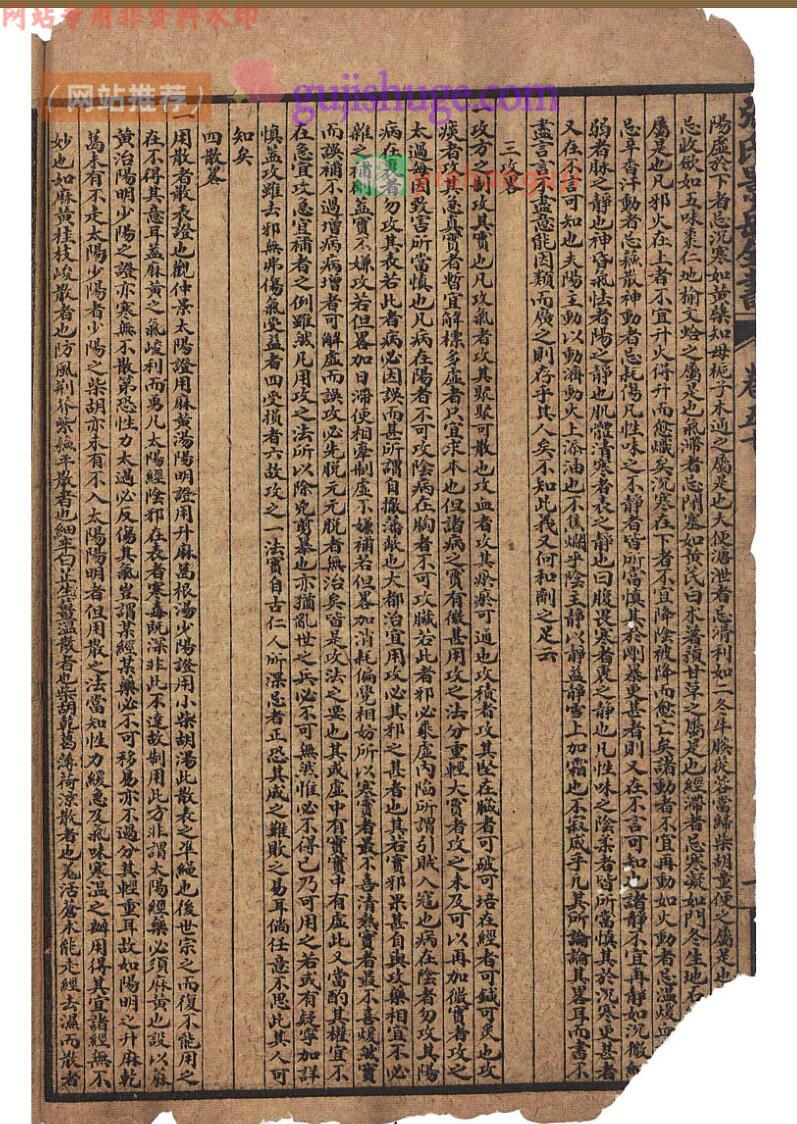 网站专用非资料水印
（网站推荐）
gujishuge.com
陽虛於下者忌沉寒如黃蘗知母梔子木通之屬是也大便溏泄者忌滑利如二冬牛膝蓯蓉當歸柴胡童便之屬是也
忌收歛如五味棗仁地榆文蛤之屬是也氣滯者忌閉塞如黃芪白朮薯蕷甘草之屬是也經滯者忌寒凝如門冬生地石
屬是也凡邪火在上者不宜升火得升而愈熾矣沉寒在下者不宜降陰被降而愈亡矣諸動者不宜再動如火動者忌溫煖血
忌辛香汗動者忌蘓散神動者忌耗傷凡性味之不靜者皆所當慎其於剛暴更甚者則又在不言可知也諸靜不宜再靜如沉微細
弱者脉之靜也神昏氣怯者陽之靜也肌體清寒者表之靜也口腹畏寒者裏之靜也凡性味之陰柔者皆所當慎其於沉寒更甚者
又在不言可知也夫陽主動以動濟動火上添油也不焦爛乎陰主靜以靜益靜雪上加霜也不寂滅乎凡其所論論其畧耳而書不
盡言言不盡意能因類而廣之則存乎其人矣不知此義又何和劑之足云
三攻畧
一攻方之制攻其實也凡攻氣者攻其聚聚可散也攻血者攻其瘀瘀可通也攻積者攻其堅在臟者可破可培在經者可鍼可灸也攻
痰者攻其急真實者暫宜解標多虛者只宜求本也但諸病之實有微甚用攻之法分重輕大實者攻之未及可以再加微實者攻之
太過每因致害所當慎也凡病在陽者不可攻陰病在胸者不可攻臟若此者邪必乘虛內陷所謂引賊入寇也病在陰者勿攻其陽
病在裏者勿攻其表若此者病必因誤而甚所謂自撤藩蔽也大都治宜用攻必其邪之甚者也其若實邪果甚自與攻藥相宜不必
雜之補劑蓋實不嫌攻若但畧加甘滯便相牽制虛不嫌補若但畧加消耗偏覺相妨所以寒實者最不喜清熱實者最不喜煖然實
而誤補不過增病病增者可解虛而誤攻必先脫元元脫者無治矣皆是攻法之要也其或虛中有實實中有虛此又當酌其權宜不
在急宜攻急宜補者之例雖然凡用攻之法所以除兇剪暴也亦猶亂世之兵必不可無然惟必不得已乃可用之若或有疑寧加詳
慎蓋攻雖去邪無弗傷氣受益者四受損者六故攻之一法實自古仁人所深忌者正恐其成之難敗之易耳倘任意不思此其人可
知矣
四散畧
一用散者散表證也觀仲景太陽證用麻黃湯陽明證用升麻葛根湯少陽證用小柴胡湯此散表之準繩也後世宗之而復不能用之
在不得其意耳蓋麻黃之氣峻利而勇凡太陽經陰邪在表者寒毒既深非此不達故制用此方非謂太陽經藥必須麻黃也設以麻
黃治陽明少陽之證亦寒無不散第恐性力太過必反傷其氣豈謂某經某藥必不可移易亦不過分其輕重耳故如陽明之升麻乾
葛未有不走太陽少陽者少陽之柴胡亦未有不入太陽陽明者但用散之法當知性力緩急及氣味寒溫之辨用得其宜諸經無不
妙也如麻黃桂枝峻散者也防風荆芥紫蘓平散者也細辛白芷生薑溫散者也柴胡乾葛薄荷涼散者也羌活蒼朮能走經去濕而散者